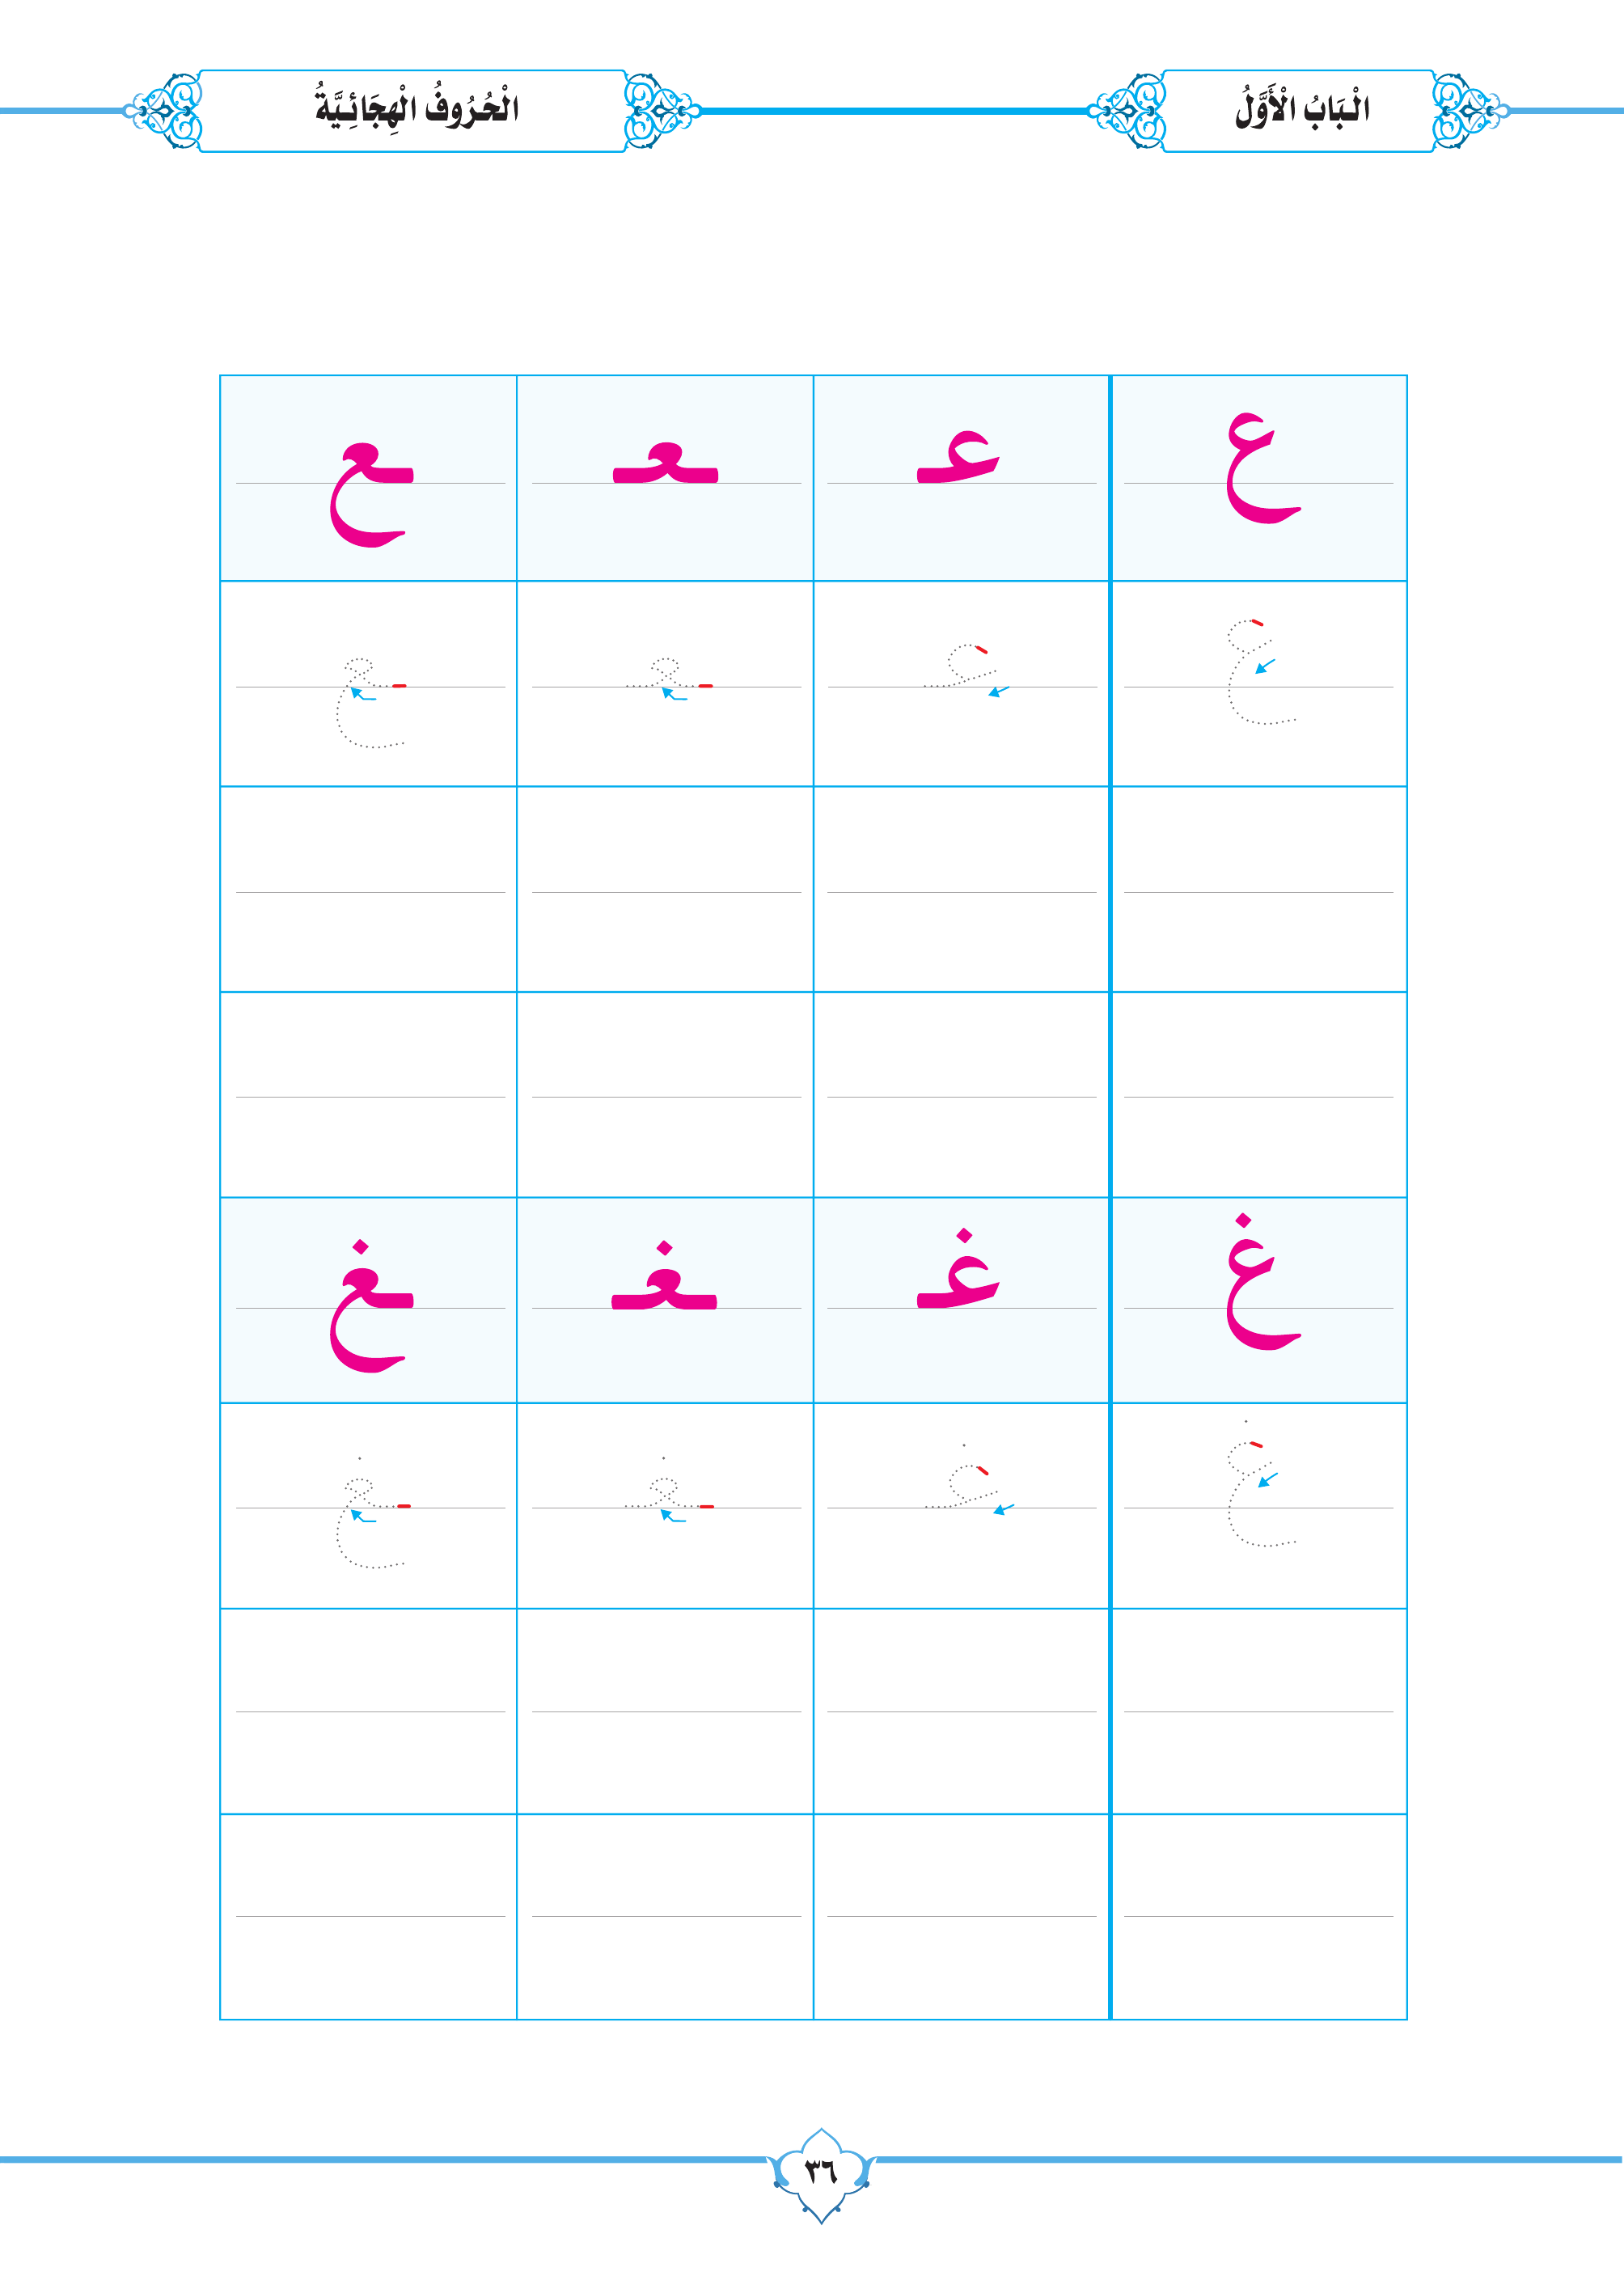 الْبَابُ الْأَوَّلُ
الْحُرُوفُ الْهِجَائِيَّةُ
ع عـ ـعـ ـع
ع عـ ـعـ ـع
غ غـ ـغـ ـغ
غ غـ ـغـ ـغ
٣٦